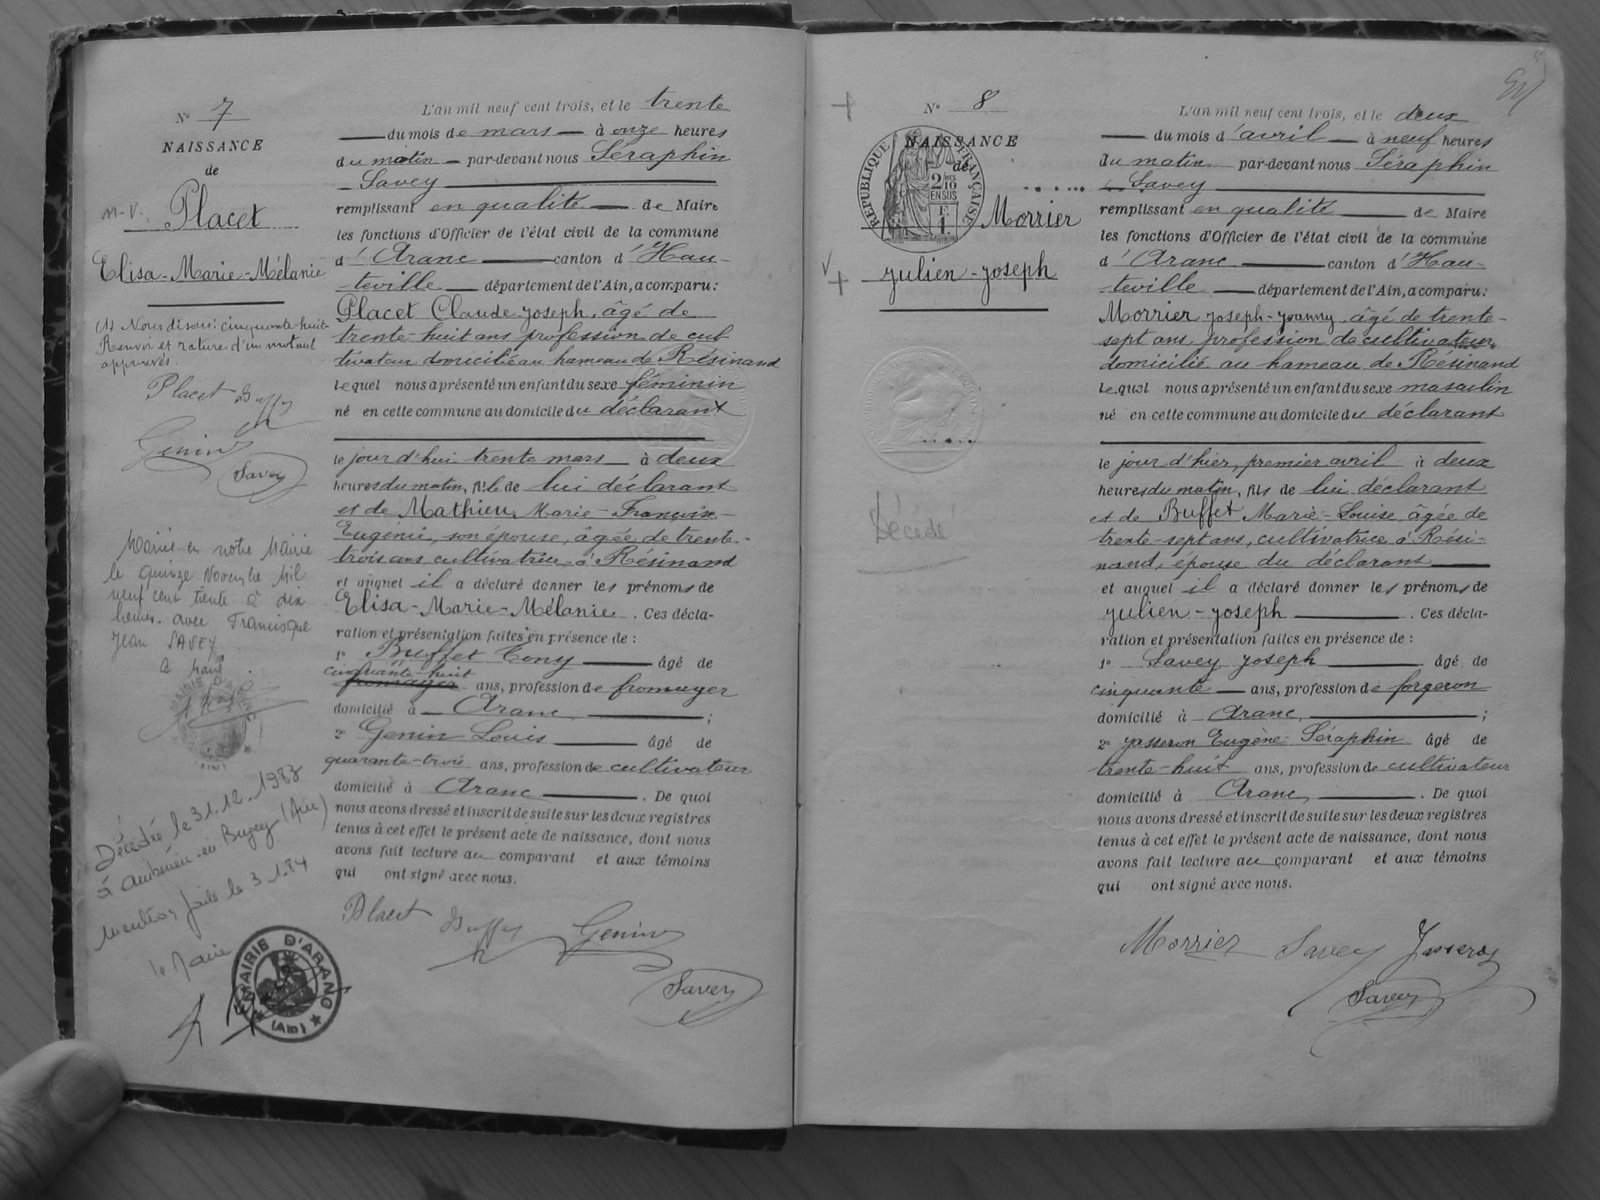 N° 7
NAISSANCE
de
M-V. Placet
Elisa-Marie-Mélanie
(1) Nous disons: cinquante-huit
Renvoi et rature d'un mot nul
approuvés.
Placet Buffet
Genin
Savey
Mariée en notre Mairie
le quinze Novembre Mil
neuf cent trente à dix
heures avec Francisque
Jean SAVEY
Le Maire
Décédée le 31.12.1983
à Ambérieu-en-Bugey (Ain)
mention faite le 3.1.84
le Maire
MAIRIE D'ARANC
(Ain)
L'an mil neuf cent trois, et le trente
du mois de mars à onze heures
du matin par-devant nous Séraphin
Savey
remplissant en qualité de Maire
les fonctions d'Officier de l'état civil de la commune
d'Aranc canton d'Hau-
teville département de l'Ain, a comparu:
Placet Claude Joseph, âgé de
trente-huit ans profession de cul-
tivateur domicilié au hameau de Résinand
Lequel nous a présenté un enfant du sexe féminin
né en cette commune au domicile du déclarant
le jour d'hui trente mars à deux
heures du matin, fille de lui déclarant
et de Mathieu, Marie-Françoise-
Eugénie, son épouse, âgée de trente-
trois ans cultivatrice à Résinand
et auquel il a déclaré donner les prénoms de
Elisa-Marie-Mélanie. Ces décla-
ration et présentation faites en présence de :
1° Buffet Tony âgé de
cinquante-huit
fromager ans, profession de fromager
domicilié à Aranc ;
2° Genin Louis âgé de
quarante-trois ans, profession de cultivateur
domicilié à Aranc. De quoi
nous avons dressé et inscrit de suite sur les deux registres
tenus à cet effet le présent acte de naissance, dont nous
avons fait lecture au comparant et aux témoins
qui ont signé avec nous.
Placet Buffet Genin
Savey
N° 8
NAISSANCE
de
RÉPUBLIQUE FRANÇAISE
2/10
EN SUS
F.
1.
Morrier
Julien-Joseph
Décédé
L'an mil neuf cent trois, et le deux
du mois d'avril à neuf heures
du matin par-devant nous Séraphin
Savey
remplissant en qualité de Maire
les fonctions d'Officier de l'état civil de la commune
d'Aranc canton d'Hau-
teville département de l'Ain, a comparu:
Morrier Joseph-Joanny âgé de trente-
sept ans, profession de cultivateur
domicilié au hameau de Résinand
Lequel nous a présenté un enfant du sexe masculin
né en cette commune au domicile du déclarant
le jour d'hier, premier avril à deux
heures du matin, fils de lui déclarant
et de Buffet Marie-Louise, âgée de
trente-sept ans, cultivatrice à Rési-
nand, épouse du déclarant
et auquel il a déclaré donner les prénoms de
Julien-Joseph. Ces décla-
ration et présentation faites en présence de :
1° Savey Joseph âgé de
cinquante ans, profession de forgeron
domicilié à Aranc ;
2° Jasseron Eugène-Séraphin âgé de
trente-huit ans, profession de cultivateur
domicilié à Aranc. De quoi
nous avons dressé et inscrit de suite sur les deux registres
tenus à cet effet le présent acte de naissance, dont nous
avons fait lecture au comparant et aux témoins
qui ont signé avec nous.
Morrier Savey Jasseron
Savey